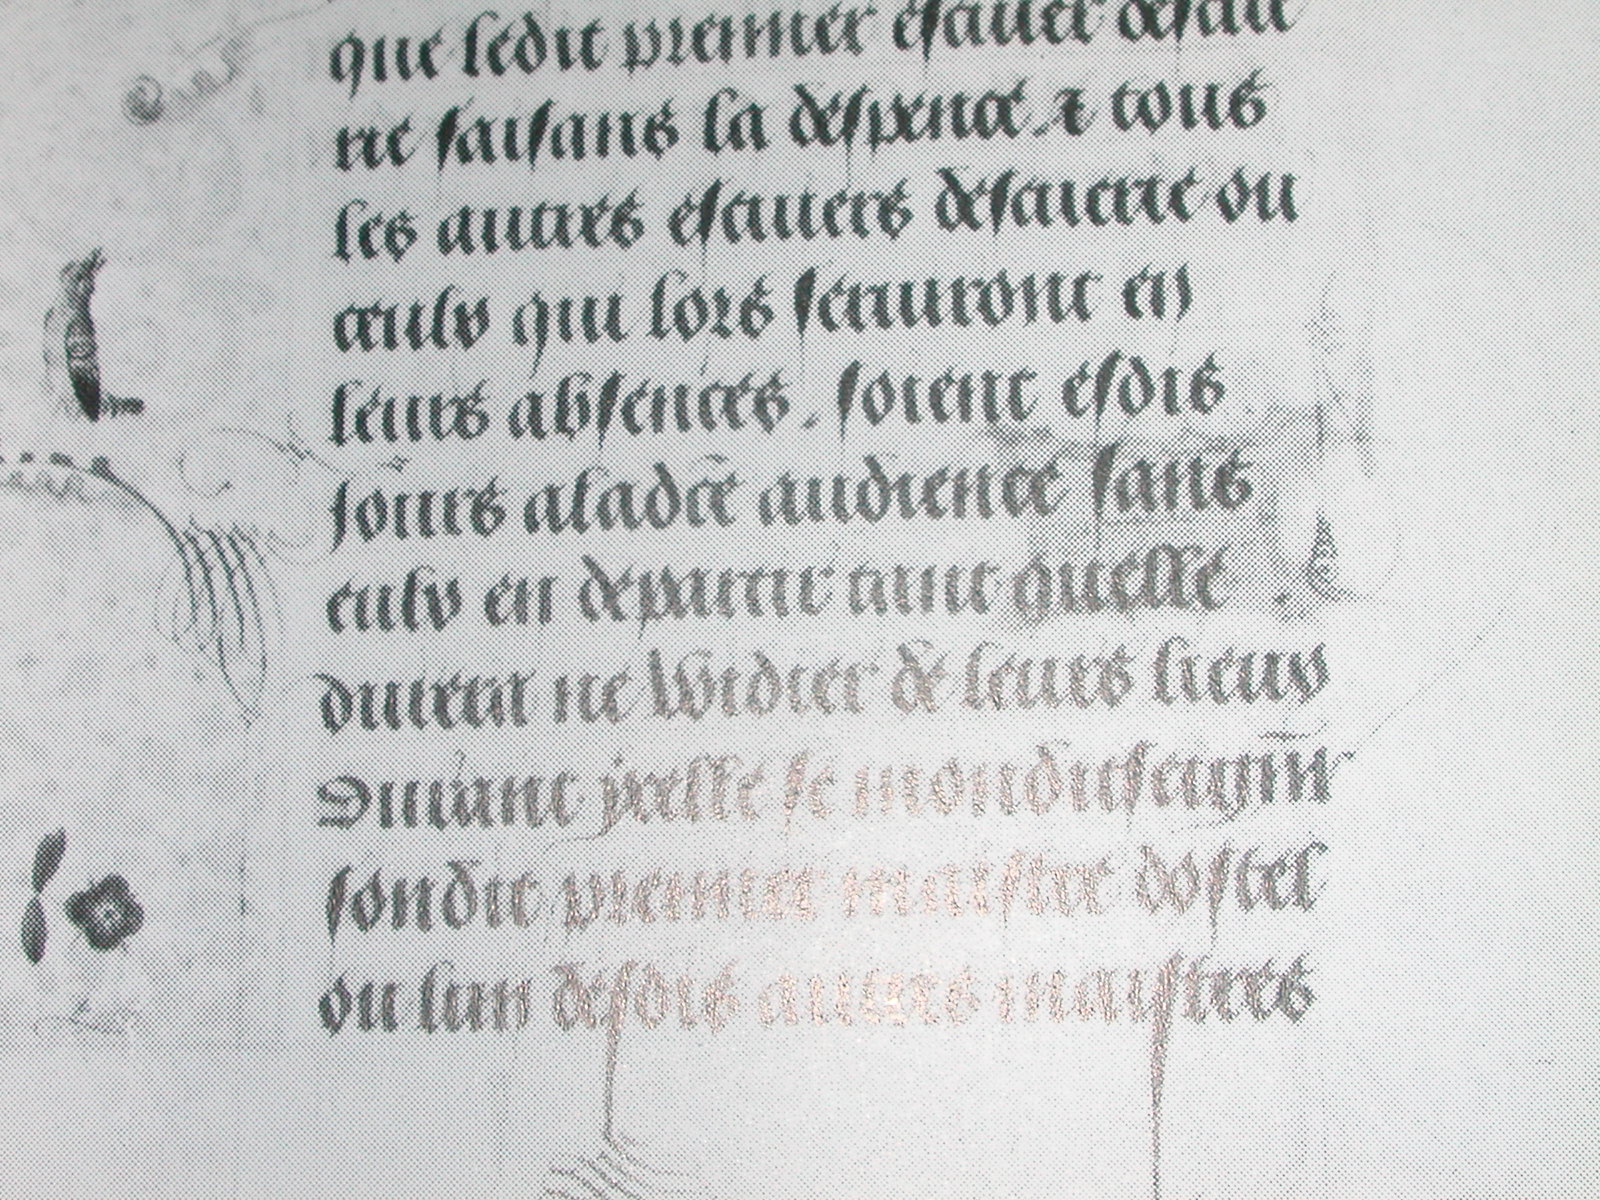 que ledit premier escuier descui
rie faisans la despence ⁊ tous
les autres escuiers descuierie ou
ceulx qui lors seruiront en
leurs absences. soient esdis
jours a ladcē audience sans
eulx en departir tant quelle
durera ne widier de leurs lieux
Duiant se mondit seignr̄
son dit premier maistre dostel
ou lun desdis autres maistres